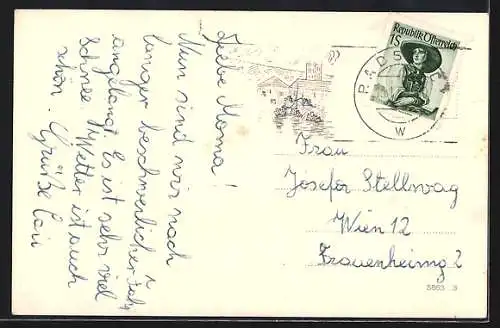 Liebe Moma!
Nun sind wir nach
langer beschwerlicher Fahrt
angelangt. Es ist sehr viel
Schnee, Wetter ist auch
schön. Grüße
Republik Österreich
1S
BAD
W
Frau
Josefa Stellwag
Wien 12
Frauenheimg 2